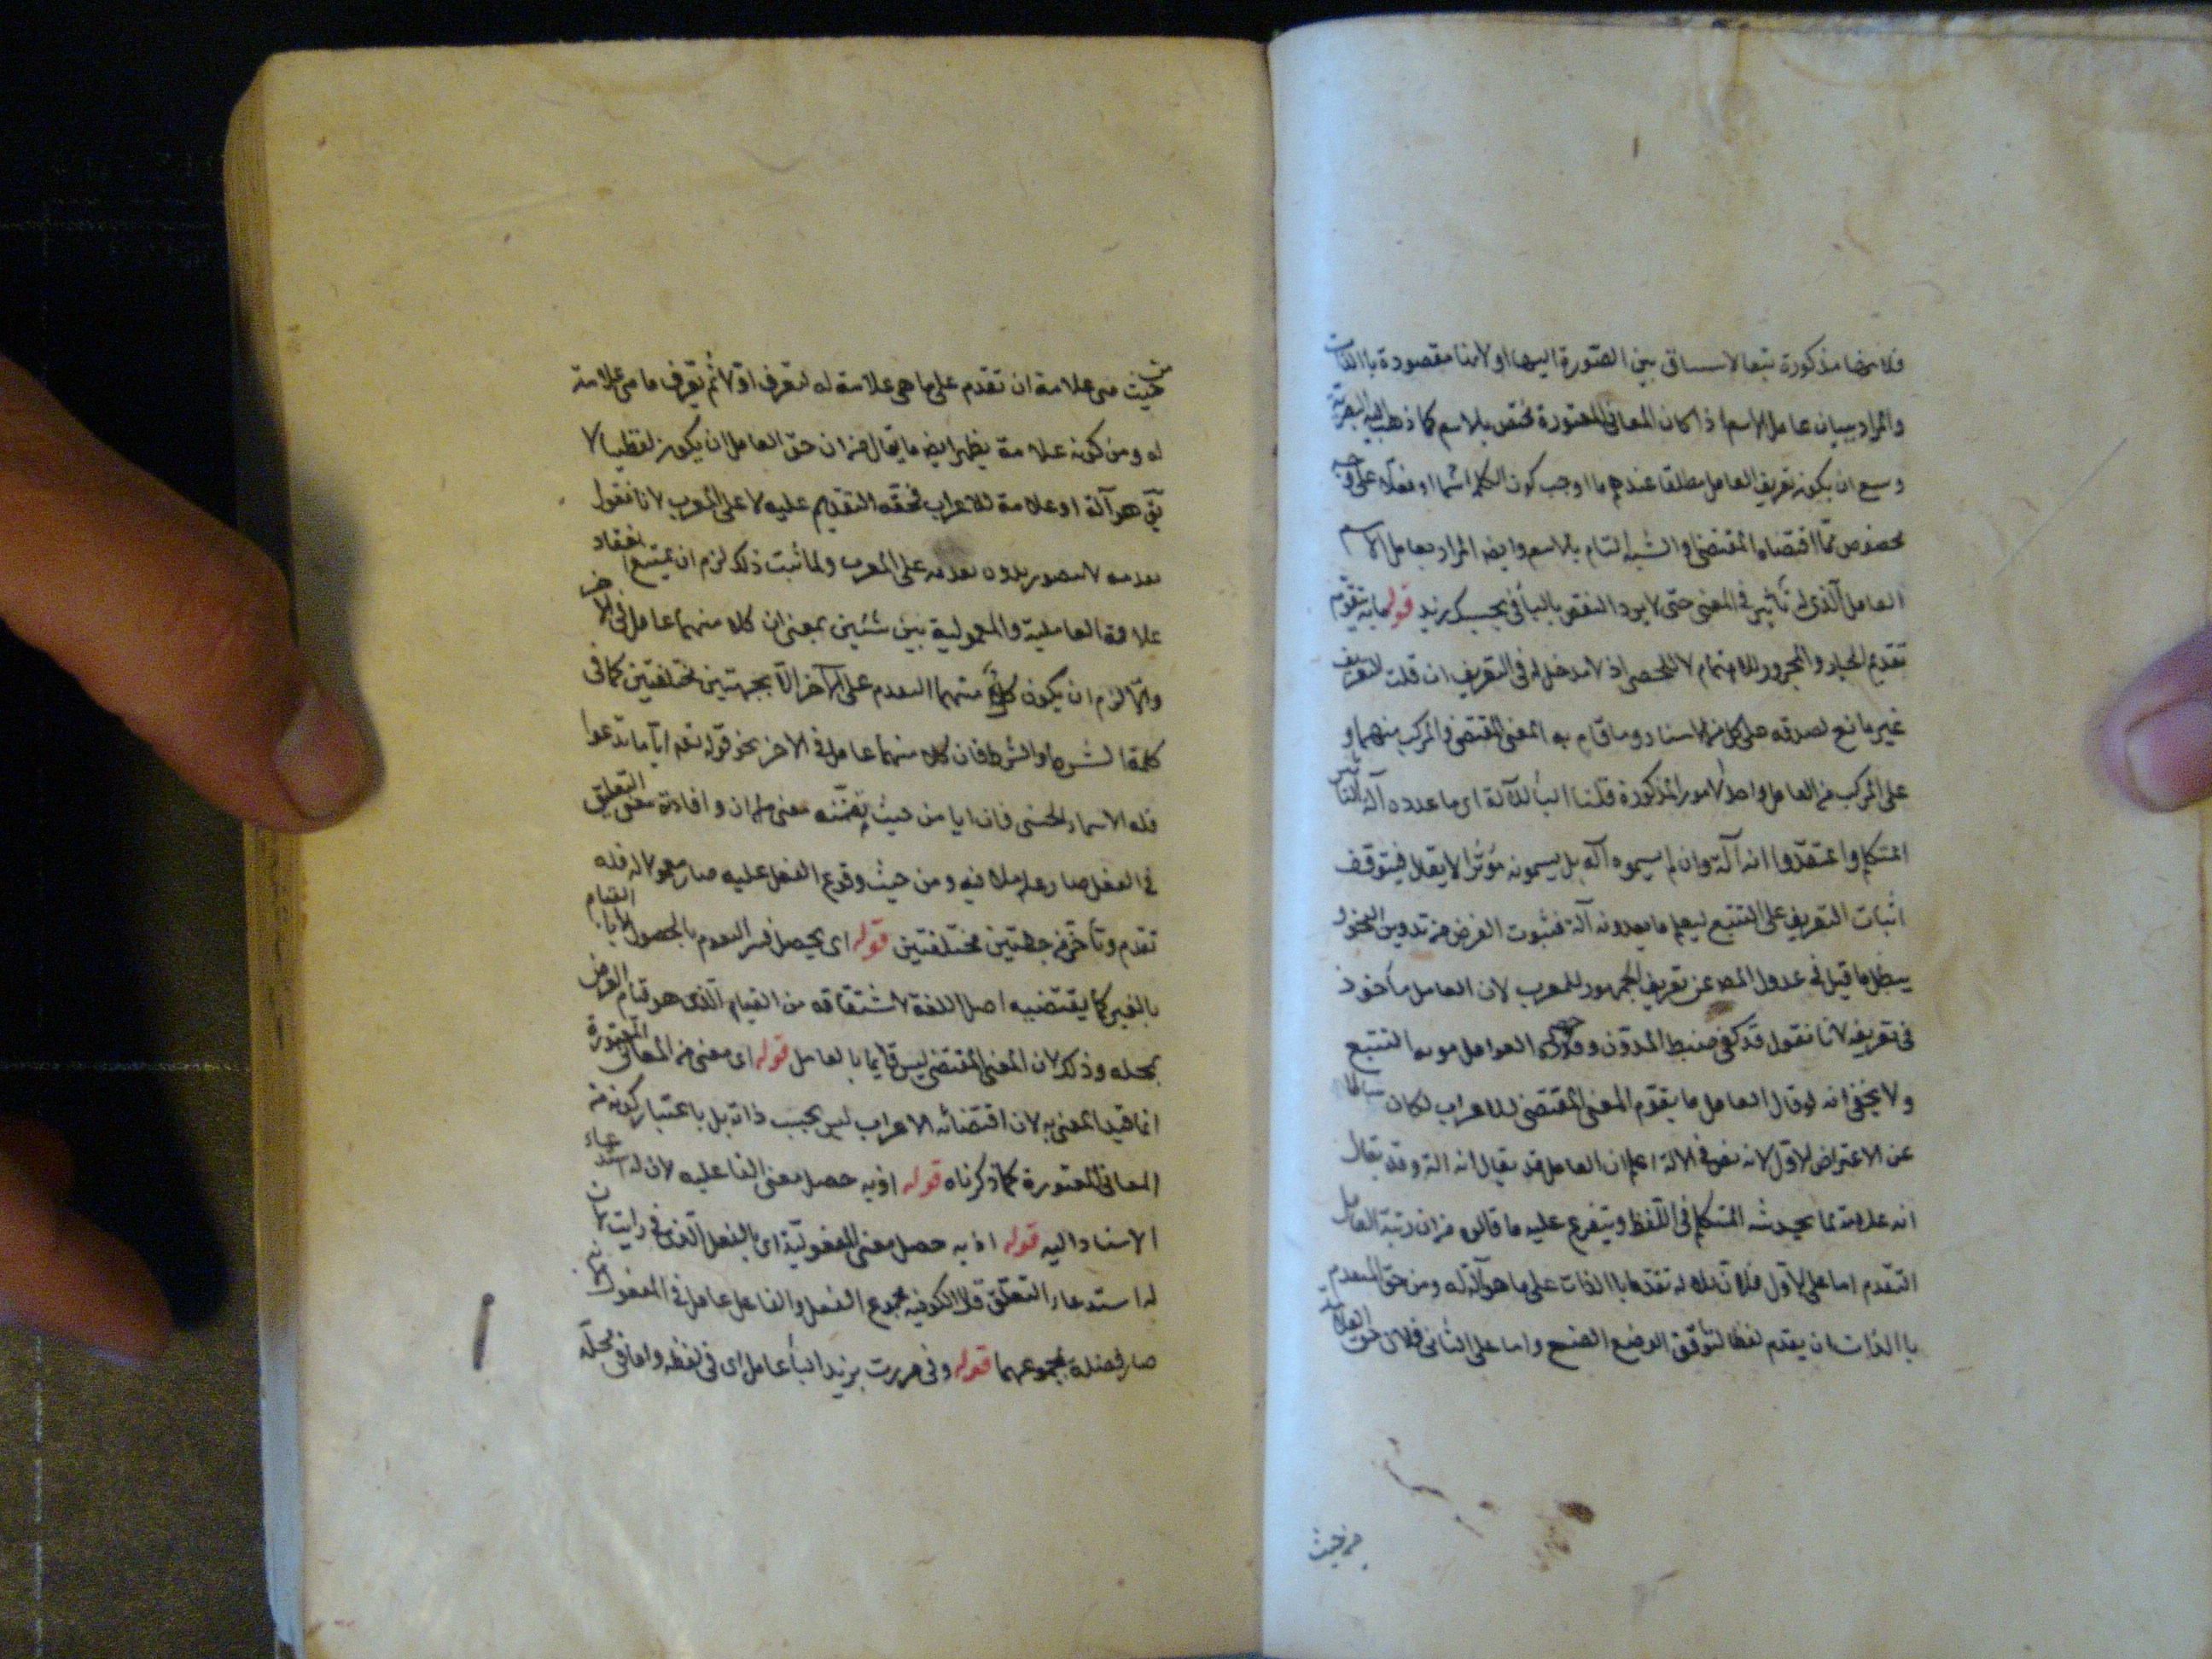 فلانها مذكورة تبعا لانسباق بين الصورة اليها اولا بنا مقصودة باالذات
والمراد ببيان عامل الاسم اذا كان المعانى المعتورة تختص بالاسم كما ذهب اليه البصرية
وسيع ان يكون تعريف العامل مطلقا عندهم ما اوجب كون الكلم اسما او فعلا على وجه
مخصوص مما اقتضاه المقتضى والشبه التام بالاسم وايضا المراد بعامل الاسم
العامل الذى له تأثير فى المعنى حتى لا يرد النقض بالبأ فى بحسبك زيد قوله ما به يتقوم
تقديم الجار والمجرور للاهتمام لا للحصر اذ لا مدخل له فى التعريف ان قلت التعريف
غير مانع لصدقه على كل من الاسناد وما قام به المعنى المقتضى والمركب منهما و
على المركب من العامل واحد الامور المذكورة قلنا البأ للآلة اى ما عدده آلة
المتكلم واعتقدوا انه آلة وان لم يسموه آله بل يسمونه مؤثرا لا يقال فيتوقف
اثبات التعريف على التتبع ليعلم ما يعدونه آلة فيثبوت الغرض من تدوين النحو و
يبطل ما قيل فى عدول المص عن تعريف الجمهور للمعرب لان العامل مأخوذ
فى تعريفه لانا نقول قد كفى ضبط المدون العوامل مونه التتبع
ولا يخفى انه لو قال العامل ما يقوم المعنى المقتضى للاعراب لكان سالما
عن الاعتراض الاول لانه نص فى الالة اعلم ان العامل قد يقال انه الة وقد يقال
انه علامة لما يحدثه المتكلم فى اللفظ ويتفرع عليه ما قالوا من ان رتبة العامل
التقدم اما على الاول فلان للآلة تقدما باالذات على ما هو آلة له ومن حق المتقدم
باالذات ان يقدم لفظا ليوافق الوضع الصنع واما على الثانى فلان حق العلامة
من حيث
من حيث هى علامة ان تقدم على ما هى علامة له لتعرف اولا ثم يعرف ما هى علامة
له ومن كونه علامة يظهر ايضا ما يقال من ان حق العامل ان يكون لفظيا لا
يق هو آلة او علامة للاعراب فحقه التقديم عليه لا على المعرب لانا نقول
تقدمه لا يتصور بدون تقدمه على المعرب ولما ثبت ذلك لزم ان يمتنع انعقاد
علاقة العاملية والمعمولية بين شئين بمعنى ان كلا منهما عامل فى الآخر
والا لزم ان يكون كل منهما التقدم على الآخر الا بجهتين مختلفتين كما فى
كلمة الشرط والشرط فان كلا منهما عامل فى الاخر نحو قوله تعم ايا ما تدعوا
فله الاسماء الحسنى فان ايا من حيث تضمنه معنى ان وافادته معنى التعليق
فى الفعل صار عاملا فيه ومن حيث وقوع الفعل عليه صار معمولا له فله
تقدم وتأخر من جهتين مختلفتين قوله اى يحصل فسر التقدم بالحصول القيام
بالغير كما يقتضيه اصل اللغة لاشتقاقه من القيام الذى هو قيام العرض
بمحله وذلك لان المعنى المقتضى ليس قايما بالعامل قوله اى معنى من المعانى المعتورة
انما قيد المعنى به لان اقتضائه الاعراب ليس بحسب ذاته بل باعتبار كونه من
المعانى المعتورة كما ذكرناه قوله اذ به حصل معنى الفاعليه لان له استدعاء
الاسناد اليه قوله اذ به حصل معنى المفعولية اى بالفعل الذى فى رايت فان
له استدعاء التعلق قلا الكوفيه مجموع الفعل والفاعل عامل فى المفعول لانه
صار فضلة بمجموعهما قوله وفى مررت بزيد البأ عامل اى فى لفظه واما فى محله